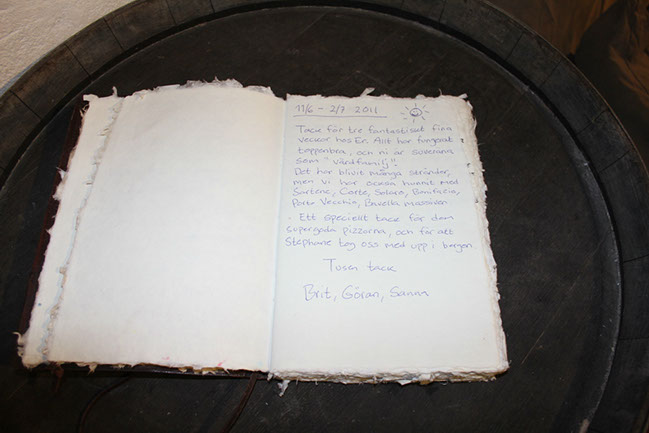 11/6 - 2/7 2011
Tack för tre fantastiskt fina
veckor hos Er. Allt har fungerat
toppenbra, och ni är suveräna
som "värdfamilj".
Det har blivit många stränder,
men vi har också hunnit med
Sartene, Corte, Solaro, Bonifacio,
Porto Vecchio, Bavella massiven
. Ett speciellt tack för dom
supergoda pizzorna, och för att
Stephane tog oss med upp i bergen.
Tusen tack
Brit, Göran, Sanna